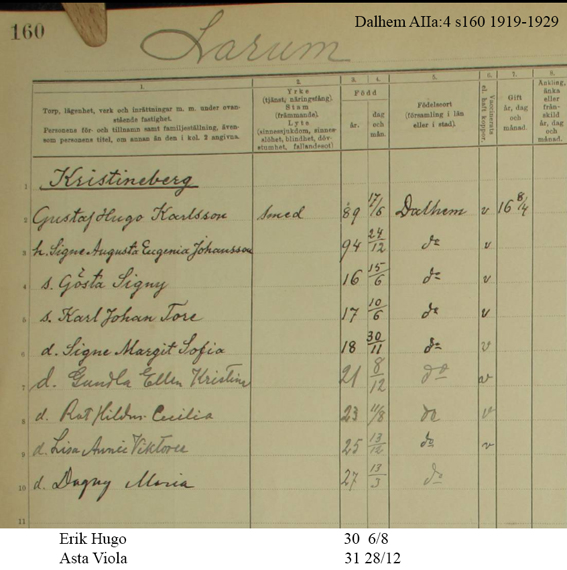 160
Dalhem AIIa:4 s160 1919-1929
Larum
1. 2. 3. 4. 5. 6. 7. 8.
Torp, lägenhet, verk och inrättningar m. m. under ovanstående fastighet.
Personens för- och tillnamn samt familjeställning, även- som personens titel, om annan än den i kol. 2 angivna.
Yrke
(tjänst, näringsfång).
Stam
(främmande).
Lyte
(sinnessjukdom, sinnes-
slöhet, blindhet, döv-
stumhet, fallandesot)
Född
år.
dag
och
mån.
Födelseort
(församling i län
eller i stad).
Vaccinerats
el. haft koppor.
Gift
år, dag
och
månad.
Änkling,
änka
eller
från-
skild
år, dag
och
månad.
1 Kristineberg
2 Gustaf Hugo Karlsson smed 89 17/6 Dalhem v 16 8/4
3 h. Signe Augusta Eugenia Johansson 94 24/12 do v
4 s. Gösta Signy 16 15/6 do v
5 s. Karl Johan Tore 17 10/6 do v
6 d. Signe Margit Sofia 18 30/11 do v
7 d. Gundla Ellen Kristine 21 8/12 do v
8 d. Rut Hildur Cecilia 23 11/8 do v
9 d. Lisa Viktoria 25 13/12 do v
10 d. Dagny Maria 27 13/3 do
11
Erik Hugo 30 6/8
Asta Viola 31 28/12